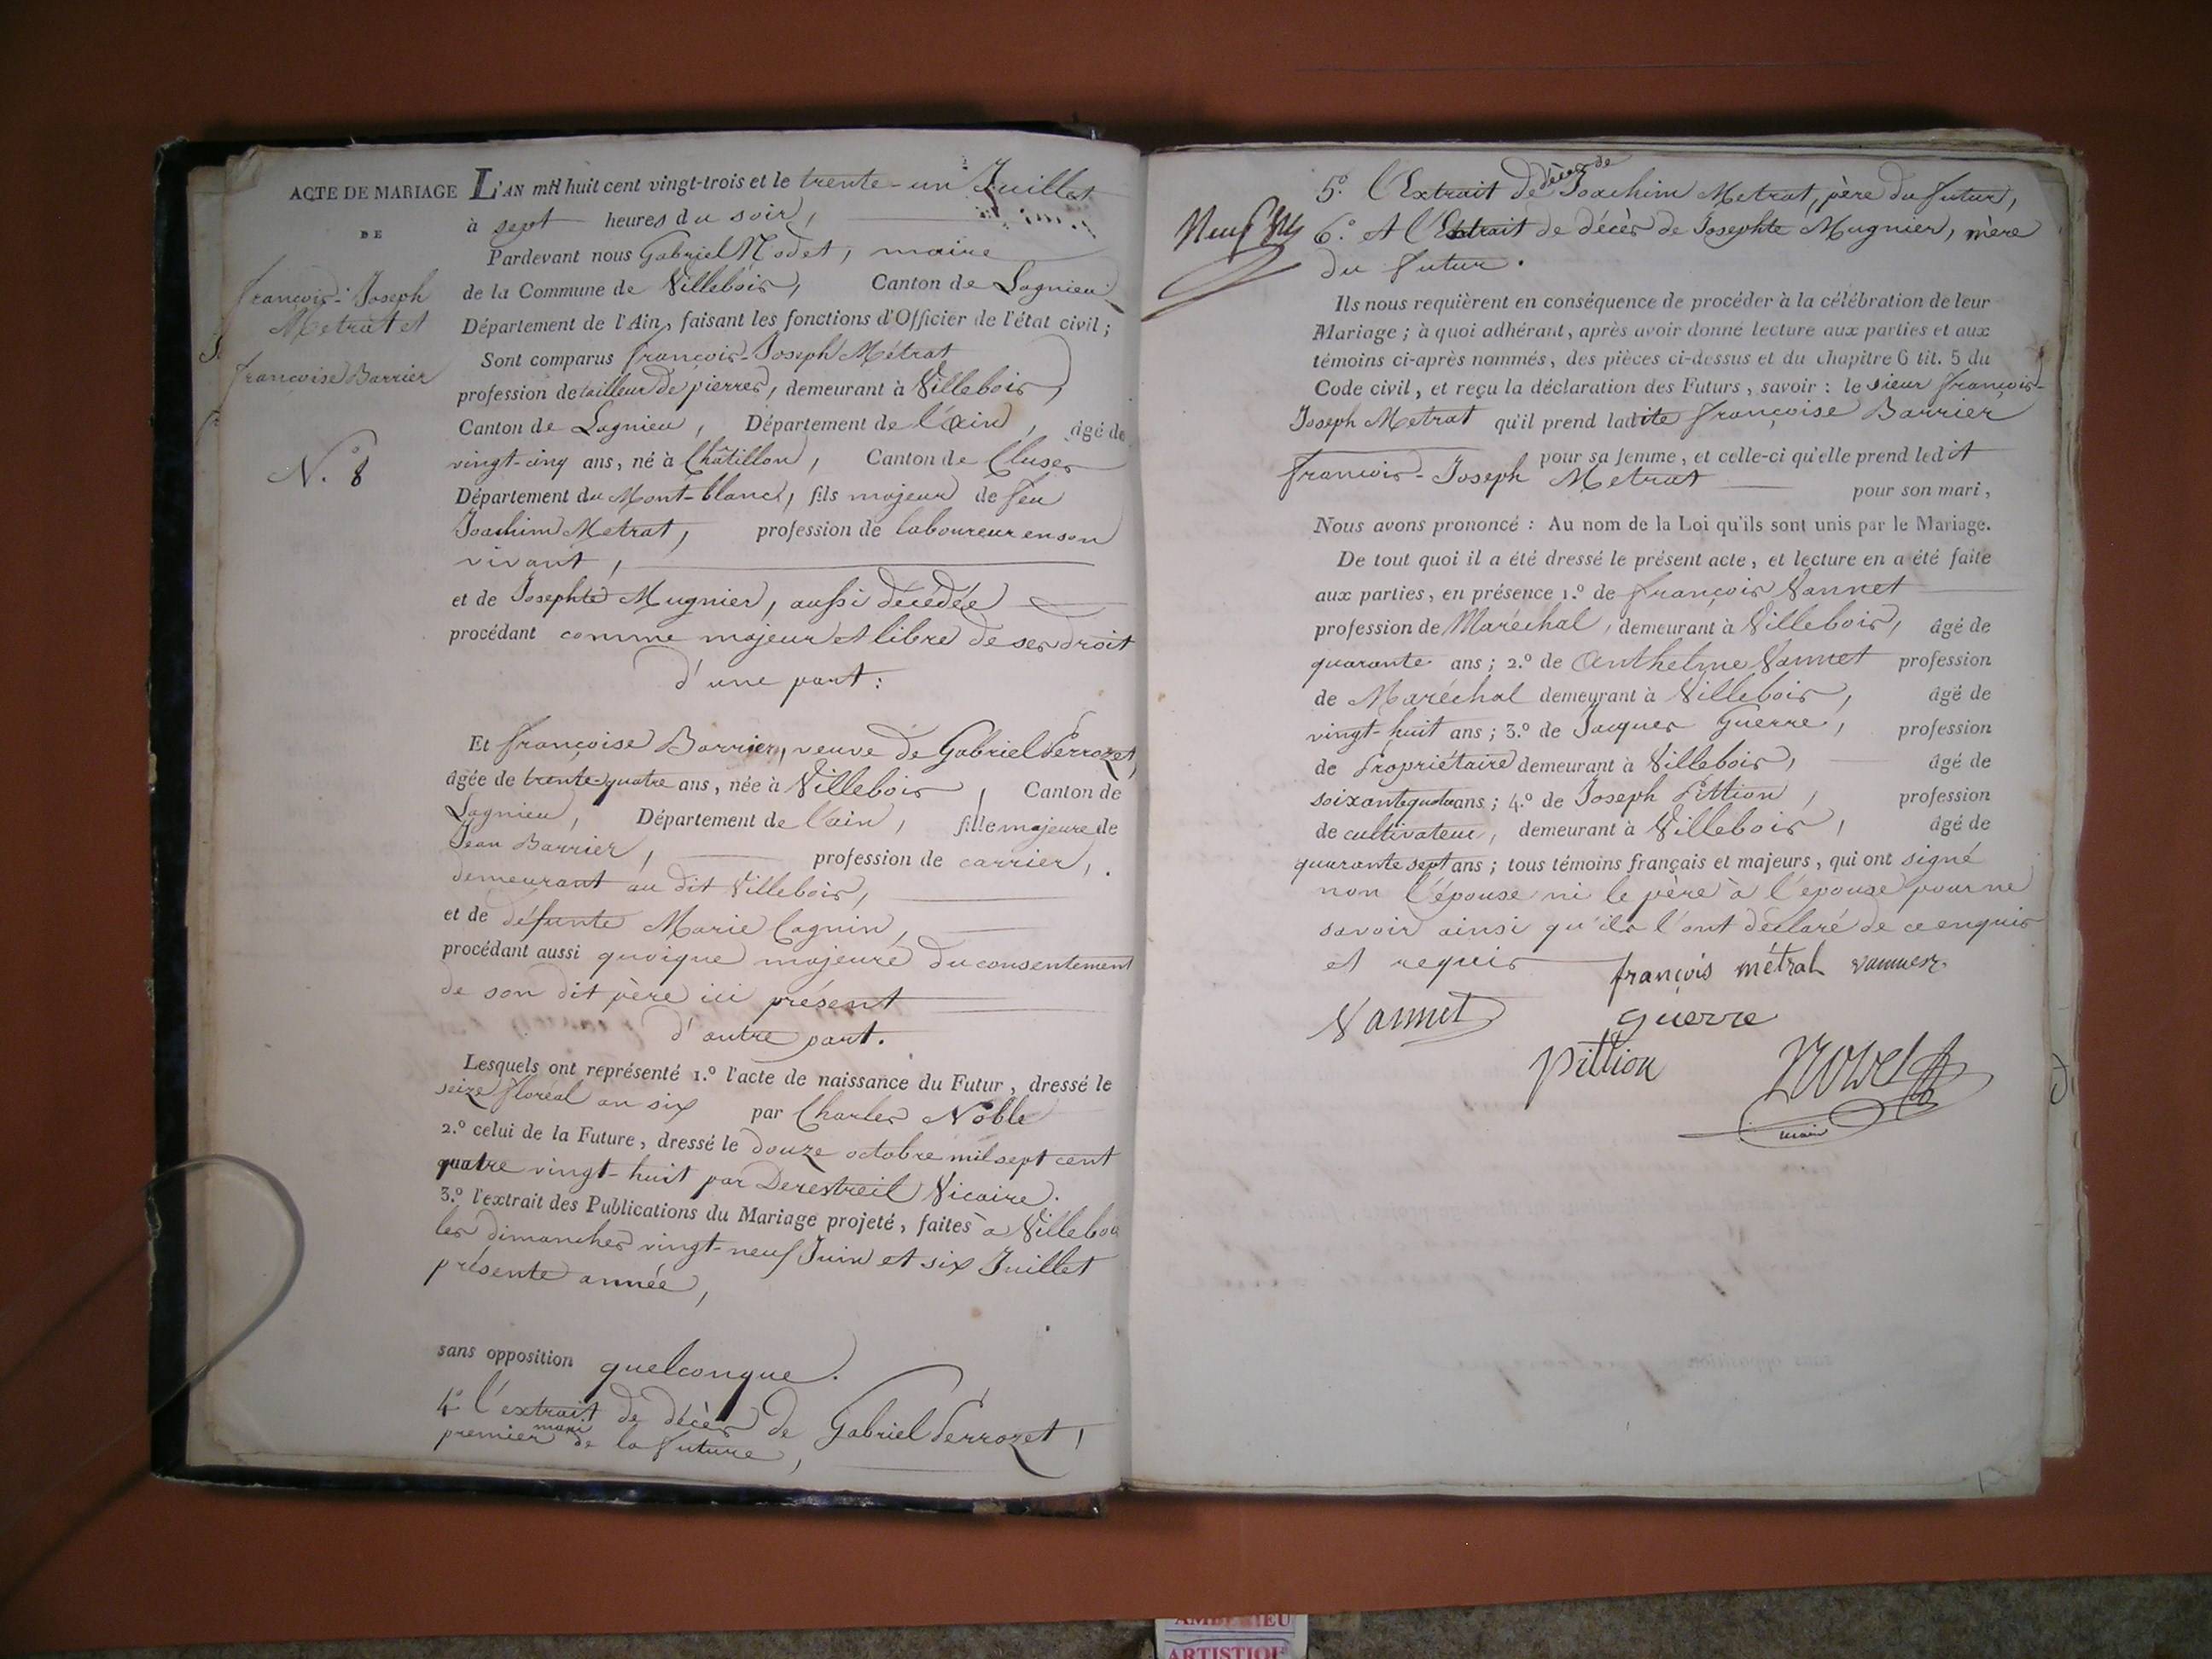 ACTE DE MARIAGE
DE
françois-Joseph
Metrat et
françoise Barrier
N.º 8
L'AN mil huit cent vingt-trois et le trente-un Juillet
à sept heures du soir,
Pardevant nous Gabriel Nodet, maire
de la Commune de Villebois, Canton de Lagnieu
Département de l'Ain, faisant les fonctions d'Officier de l'état civil ;
Sont comparus françois-Joseph Métrat
profession de tailleur de pierres, demeurant à Villebois,
Canton de Lagnieu, Département de l'ain, âgé de
vingt-cinq ans, né à Châtillon, Canton de Cluses
Département du Mont-blanc, fils majeur de feu
Joachim Metrat, profession de laboureur en son
vivant,
et de Josephte Mugnier, aussi décédée
procédant comme majeur et libre de ses droit
d'une part :
Et françoise Barrier, veuve de Gabriel Perrozet,
âgée de trente-quatre ans, née à Villebois, Canton de
Lagnieu, Département de l'ain, fille majeure de
Jean Barrier, profession de carrier,
demeurant au dit Villebois,
et de défunte Marie Cagnin,
procédant aussi quoique majeure du consentement
de son dit père ici présent
d'autre part.
Lesquels ont représenté 1.º l'acte de naissance du Futur, dressé le
seize floréal an six par Charles Noble
2.º celui de la Future, dressé le douze octobre mil sept cent
quatre vingt-huit par Derestreil Vicaire.
3.º l'extrait des Publications du Mariage projeté, faites à Villebois
les dimanches vingt-neuf Juin et six Juillet
présente année,
sans opposition quelconque.
4.º l'extrait de décès de Gabriel Perrozet,
premier mari de la future,
5.º l'Extrait de décès de Joachim Metrat, père du futur,
Neuf
6.º et l'Extrait de décès de Josephte Mugnier, mère
du futur.
Ils nous requièrent en conséquence de procéder à la célébration de leur
Mariage ; à quoi adhérant, après avoir donné lecture aux parties et aux
témoins ci-après nommés, des pièces ci-dessus et du chapitre 6 tit. 5 du
Code civil, et reçu la déclaration des Futurs, savoir : le sieur françois-
Joseph Metrat qu'il prend ladite françoise Barrier
pour sa femme, et celle-ci qu'elle prend ledit
francois-Joseph Metrat pour son mari,
Nous avons prononcé : Au nom de la Loi qu'ils sont unis par le Mariage.
De tout quoi il a été dressé le présent acte, et lecture en a été faite
aux parties, en présence 1.º de françois Vannet
profession de Maréchal, demeurant à Villebois, âgé de
quarante ans ; 2.º de Anthelme Vannet profession
de Maréchal demeurant à Villebois, âgé de
vingt-huit ans ; 3.º de Jacques Guerre, profession
de Propriétaire demeurant à Villebois, âgé de
soixante quatre ans ; 4.º de Joseph Pittion, profession
de cultivateur, demeurant à Villebois, âgé de
quarante sept ans ; tous témoins français et majeurs, qui ont signé
non l'épouse ni le père à l'épouse pour ne
savoir ainsi qu'ils l'ont déclaré de ce enquis
et requis
françois métral vannez
Vannet
guerre
pittion
Nodet
maire
ARTISTIQUE